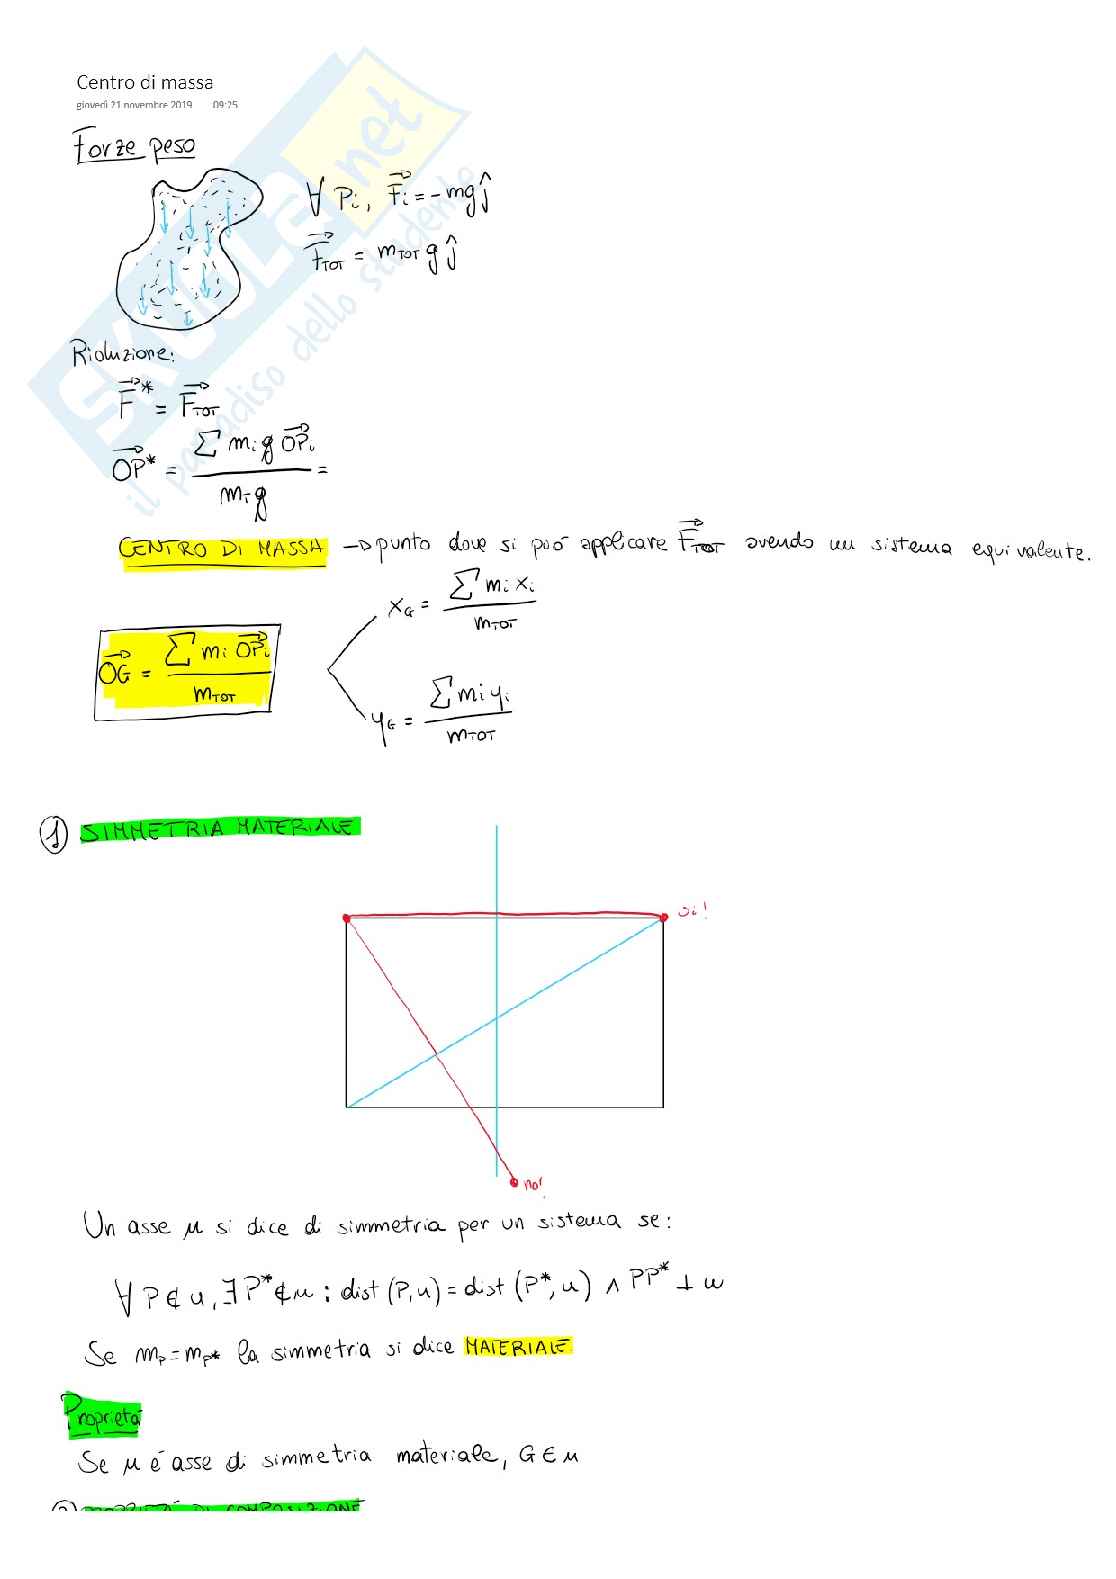 Centro di massa
giovedì 21 novembre 2019 09:25
Forze peso
∀ Pi, F⃗i = -mg ĵ
F⃗TOT = mTOT g ĵ
Riduzione:
F⃗* = F⃗TOT
OP⃗* = Σ mi g OP⃗i / mT g =
CENTRO DI MASSA → punto dove si può applicare F⃗TOT avendo un sistema equivalente.
xG = Σ mi xi / mTOT
OG⃗ = Σ mi OP⃗i / mTOT
yG = Σ mi yi / mTOT
1) SIMMETRIA MATERIALE
si!
no!
Un asse u si dice di simmetria per un sistema se:
∀ P ∉ u, ∃ P* ∉ u : dist (P, u) = dist (P*, u) ∧ PP* ⊥ u
Se mP = mP* la simmetria si dice MATERIALE
Proprietà
Se u é asse di simmetria materiale, G ∈ u
2) PROPRIETÁ DI COMPOSIZIONE
SKUOLA.net
il paradiso dello studente